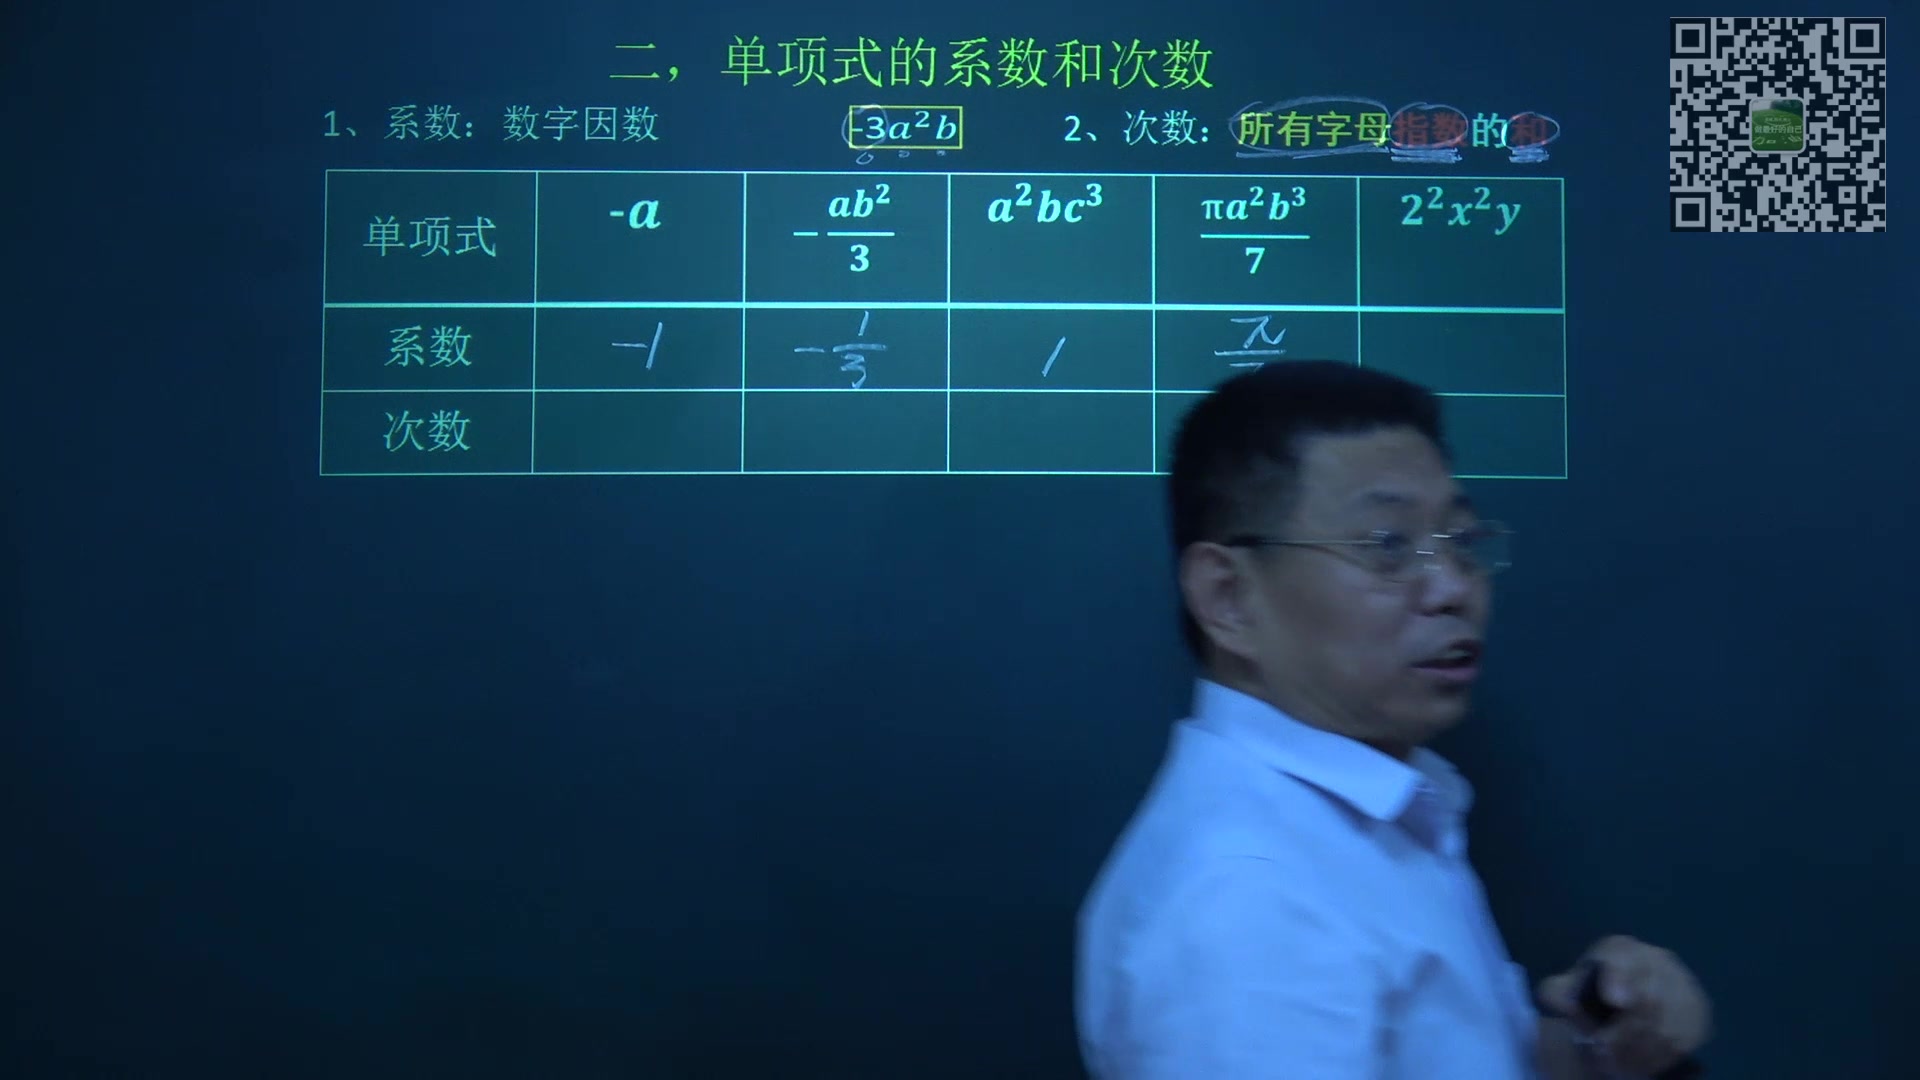 二，单项式的系数和次数
1、系数：数字因数 -3a²b 2、次数：所有字母指数的和
单项式 -a -ab²/3 a²bc³ πa²b³/7 2²x²y
系数 -1 -1/3 1 π
次数